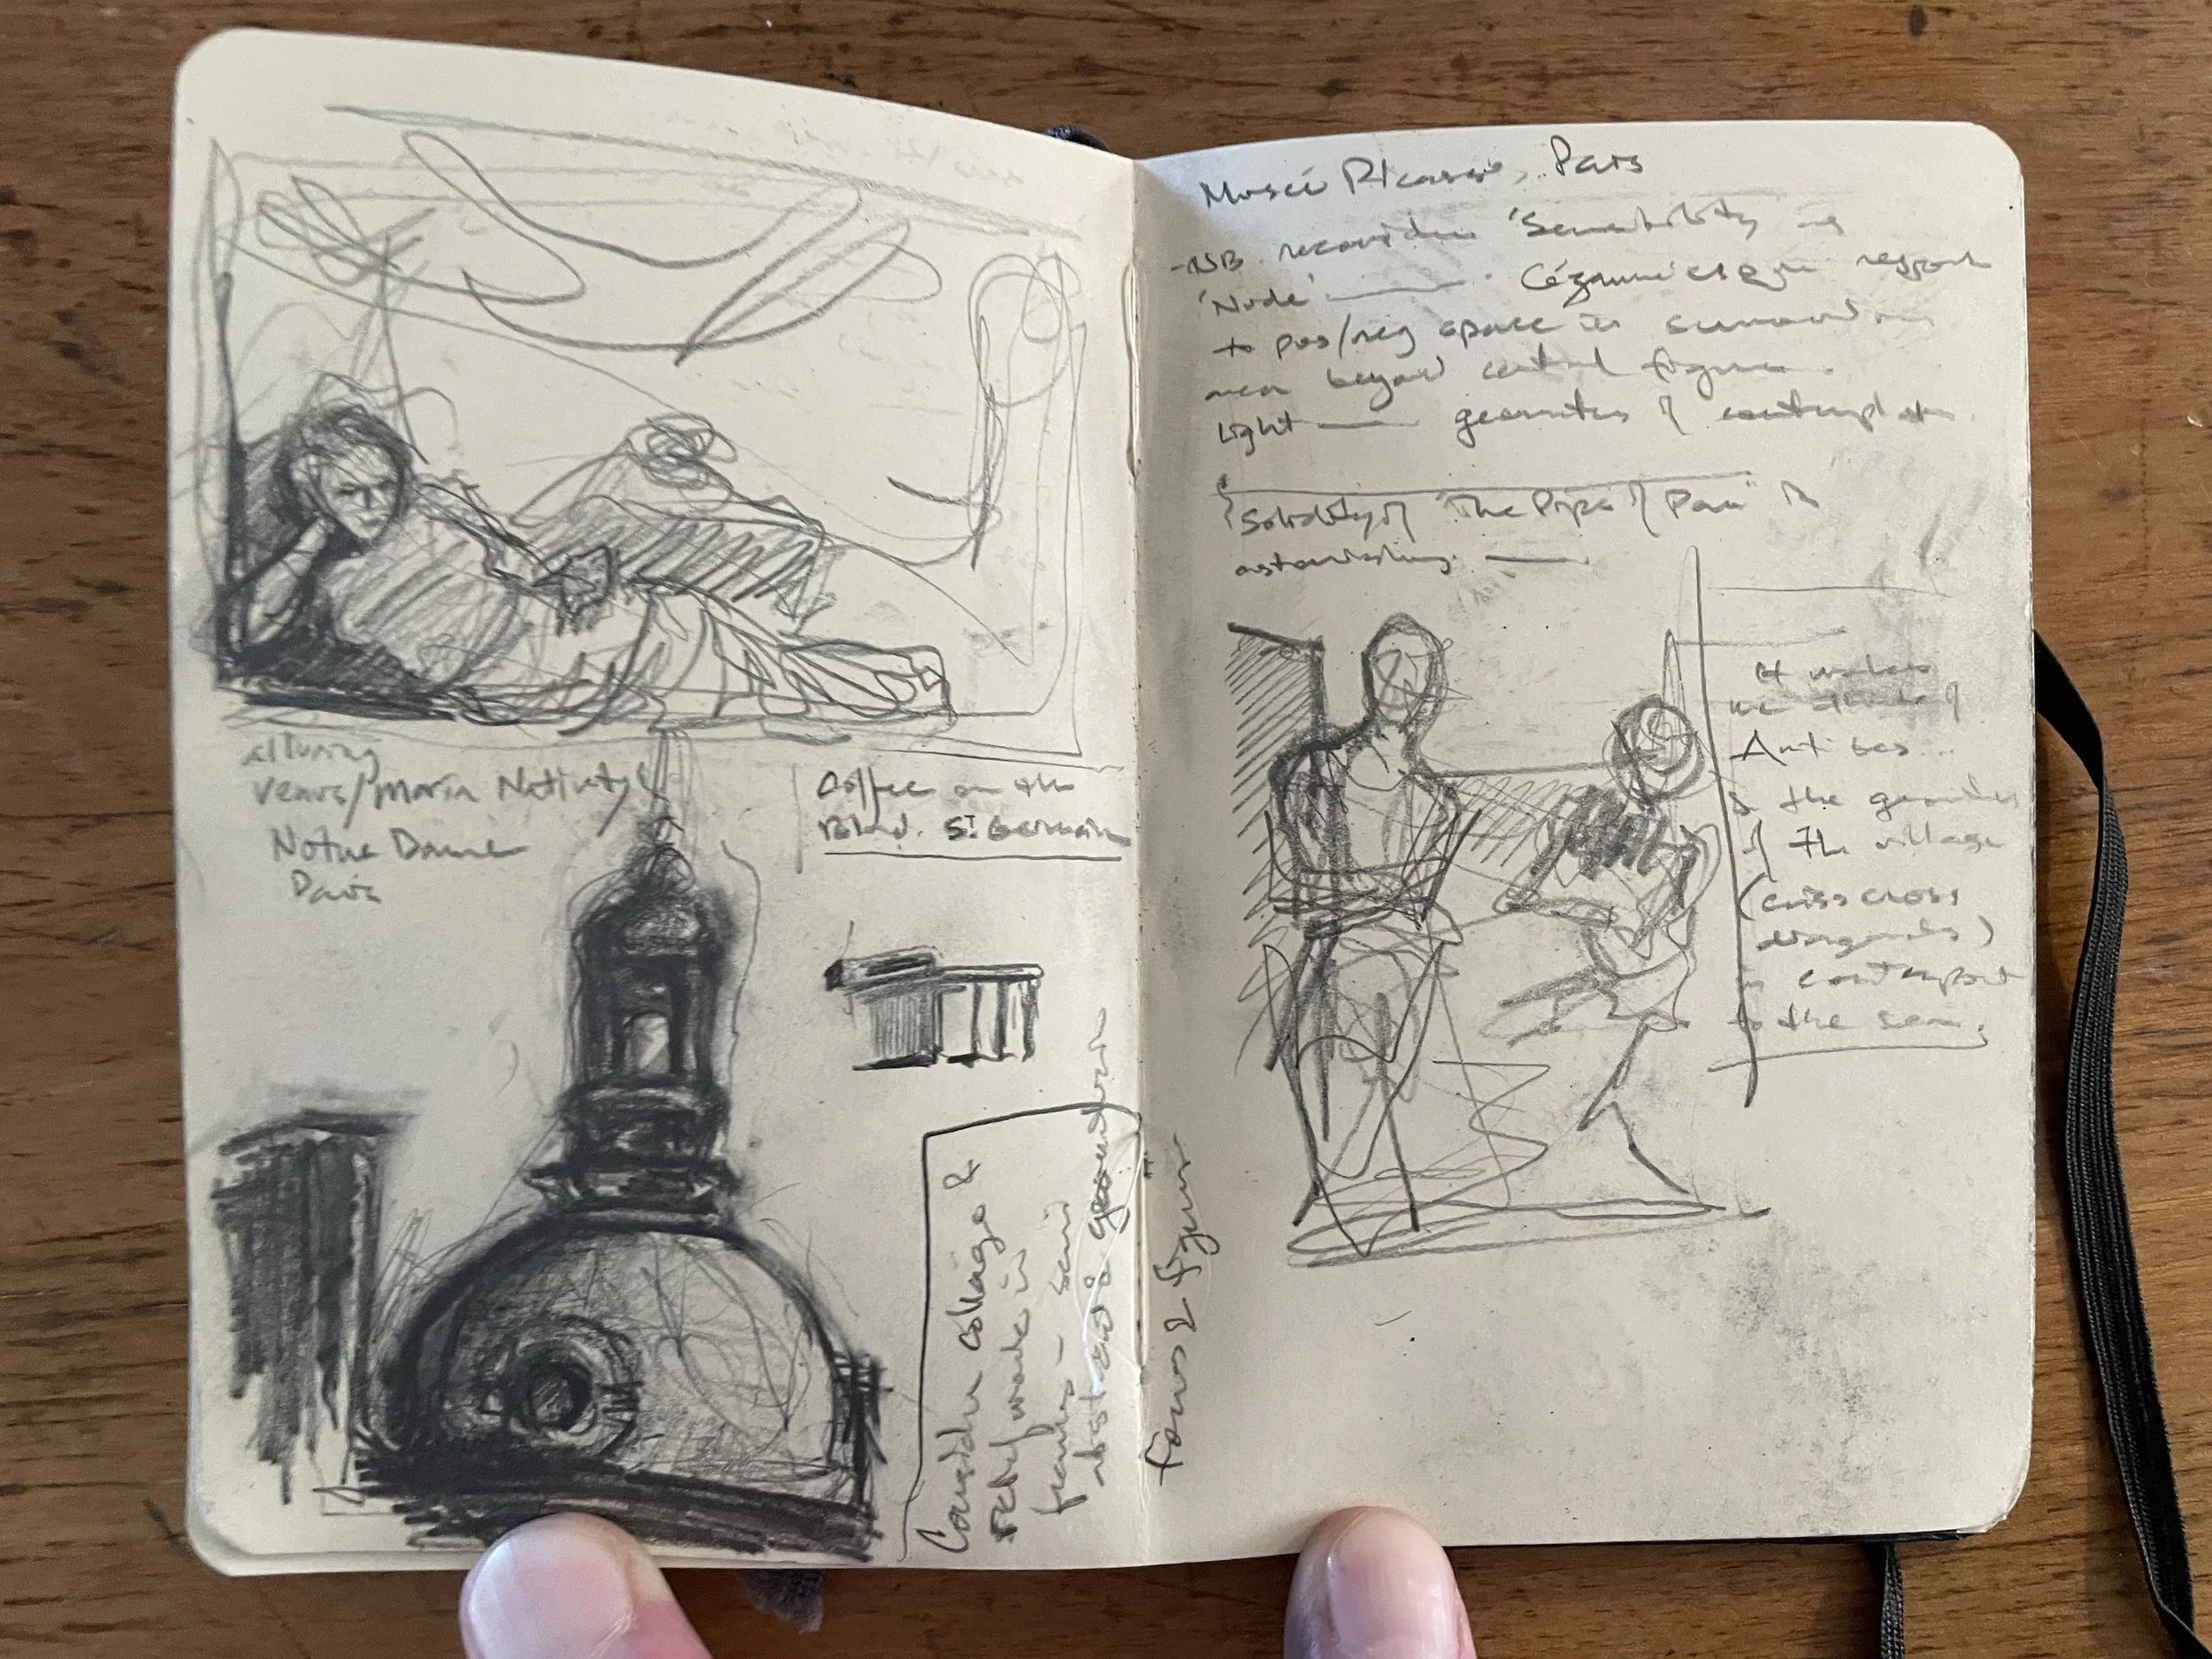 alluring
Venus/Maria Nativity
Notre Dame
Paris
Coffee on the
Blvd. St Germain
Consider collage &
work in
frames – semi
abstract & geometric
Musée Picasso, Paris
-NB reconsider 'Sensibility'
'Node' — Cézannesque
to pos/neg space in
area beyond central figure.
Light — geometries of
Solidity of "The Pipes of Pan" is
astonishing. —
It makes
me think of
Antibes...
& the geometries
of the village
(criss cross
diagonals)
in
to the sea.
Focus 2 figures